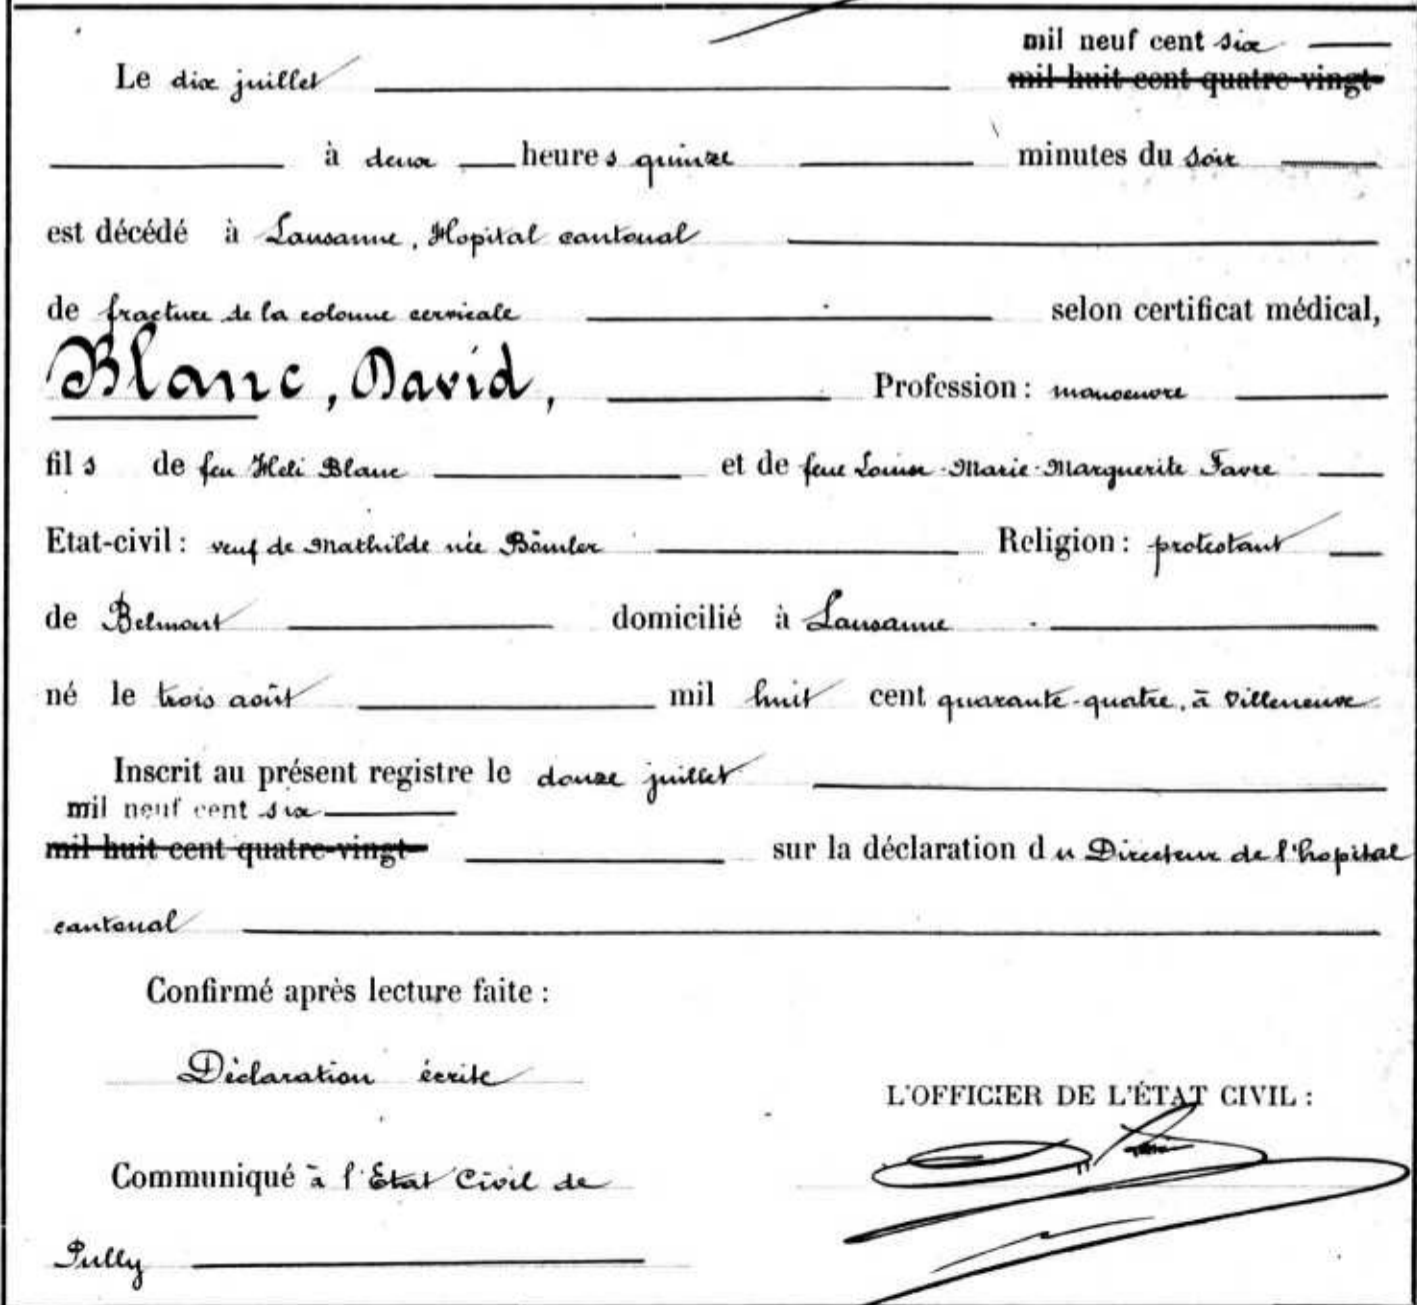 mil neuf cent six
Le dix juillet mil huit cent quatre-vingt
à deux heures quinze minutes du soir
est décédé à Lausanne, Hopital cantonal
de fracture de la colonne cervicale selon certificat médical,
Blanc, David, Profession : manoeuvre
fils de feu Héli Blanc et de feue Louise-Marie-Marguerite Favre
Etat-civil : veuf de Mathilde née Bäumler Religion : protestant
de Belmont domicilié à Lausanne
né le trois août mil huit cent quarante-quatre, à Villeneuve
Inscrit au présent registre le douze juillet
mil neuf cent six
mil huit cent quatre-vingt sur la déclaration du Directeur de l'hopital
cantonal
Confirmé après lecture faite :
Déclaration écrite
L'OFFICIER DE L'ÉTAT CIVIL :
Communiqué à l'Etat Civil de
Pully